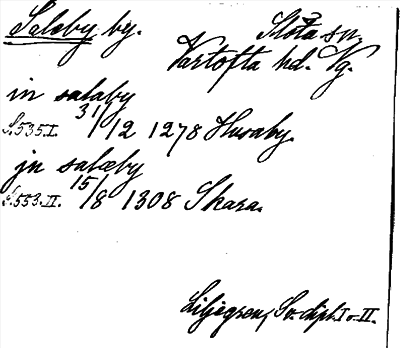 Saleby by. Slöta sn.
Vartofta hd. Vg.
in salaby
S.535.I. 31/12 1278 Husaby.
jn salæby
S.553.II. 15/8 1308 Skara.
Liljegren, Sv. dipl. I o. II.